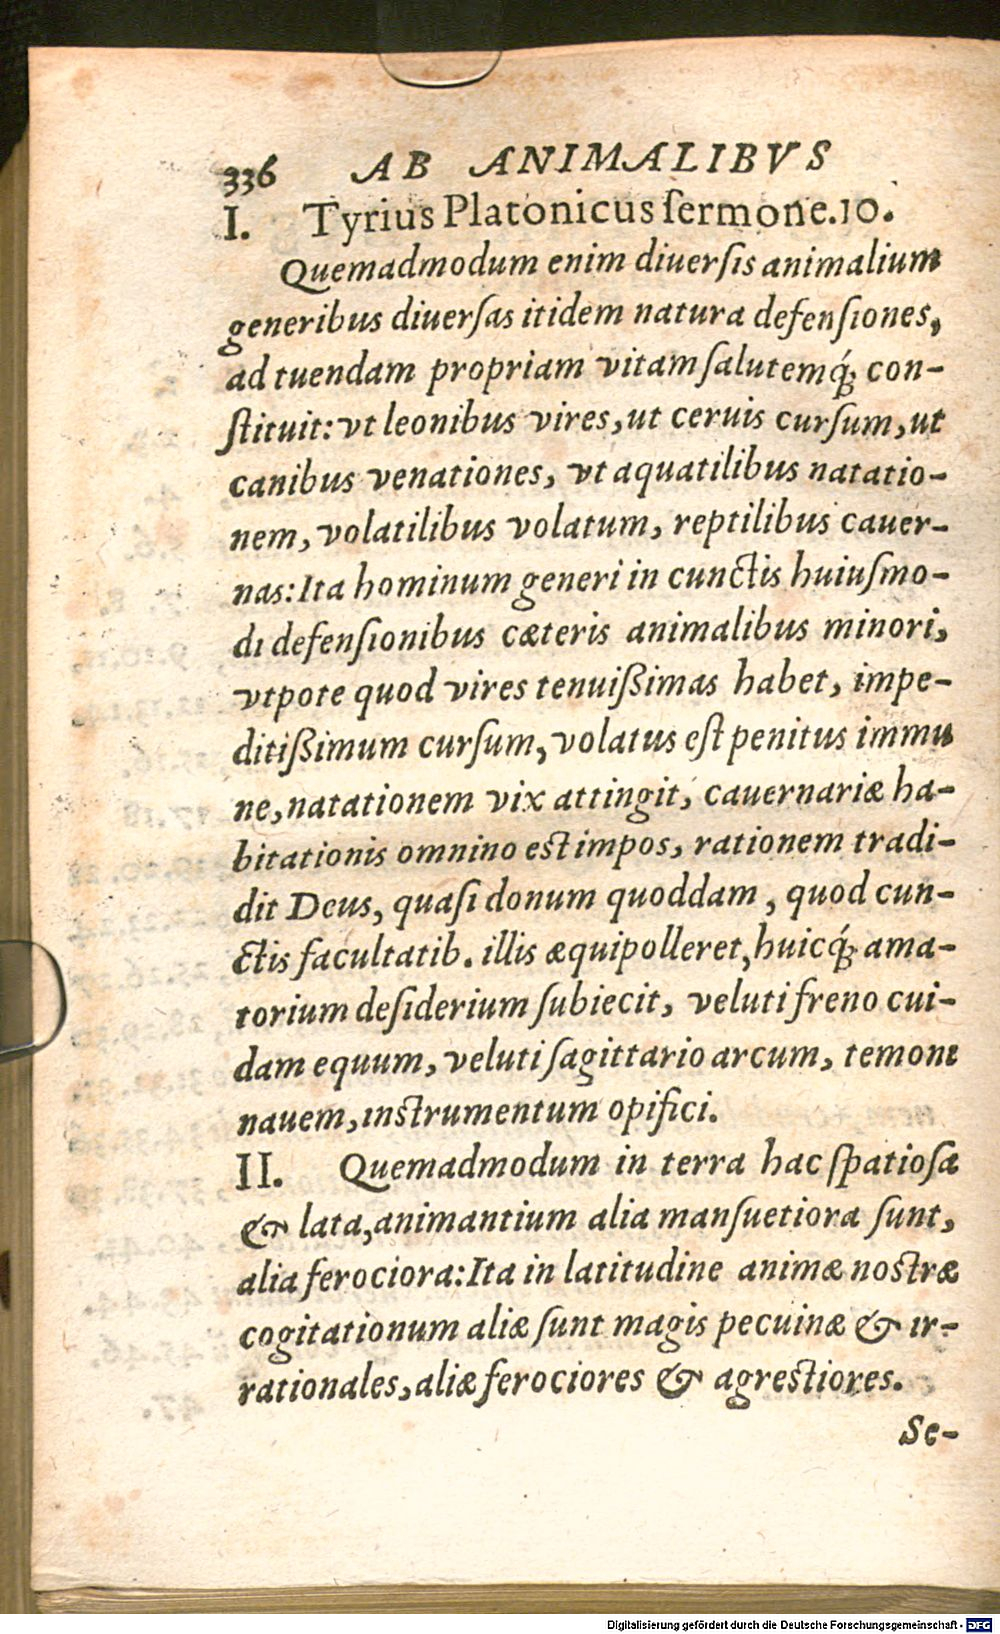 336 AB ANIMALIBVS
I. Tyrius Platonicus ſermone.10.
Quemadmodum enim diuerſis animalium
generibus diuerſas itidem natura defenſiones,
ad tuendam propriam vitam ſalutemq́; con-
ſtituit: vt leonibus vires, ut ceruis curſum, ut
canibus venationes, vt aquatilibus natatio-
nem, volatilibus volatum, reptilibus cauer-
nas: Ita hominum generi in cunctis huiuſmo-
di defenſionibus cæteris animalibus minori,
vtpote quod vires tenuißimas habet, impe-
ditißimum curſum, volatus eſt penitus immu
ne, natationem vix attingit, cauernariæ ha-
bitationis omnino est impos, rationem tradi-
dit Deus, quaſi donum quoddam, quod cun-
ctis facultatib. illis æquipolleret, huicq́; ama-
torium deſiderium ſubiecit, veluti freno cui-
dam equum, veluti ſagittario arcum, temoni
nauem, instrumentum opifici.
II. Quemadmodum in terra hac ſpatioſa
& lata, animantium alia manſuetiora ſunt,
alia ferociora: Ita in latitudine animæ nostræ
cogitationum aliæ ſunt magis pecuinæ & ir-
rationales, aliæ ferociores & agrestiores.
Se-
Digitalisierung gefördert durch die Deutsche Forschungsgemeinschaft - DFG